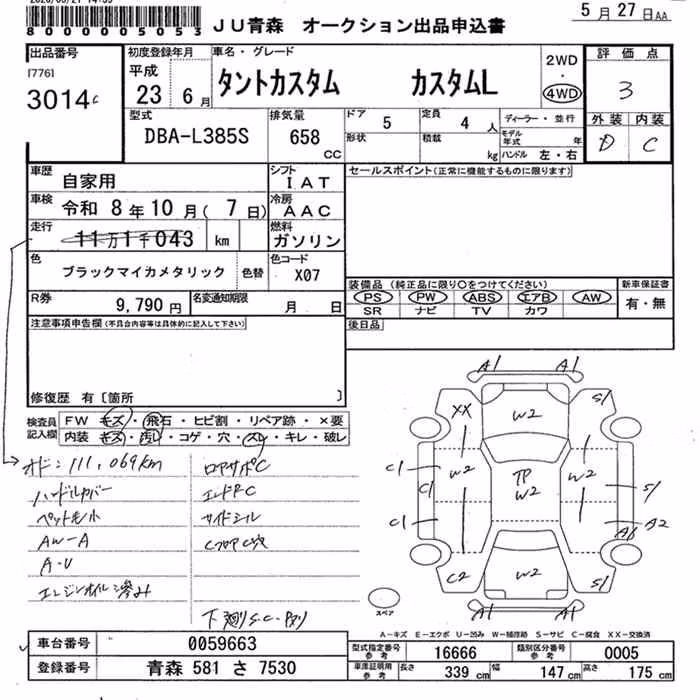 5月27日AA
800000505053
JU青森 オークション出品申込書
出品番号
[776]
3014c
初度登録年月
平成
23 6月
車名・グレード
タントカスタム カスタムL
2WD
・
4WD
評価点
3
外装 内装
D C
型式
DBA-L385S
排気量
658
CC
ドア 5
定員 4人
形状
積載 kg
ディーラー・並行
モデル年式 年
ハンドル 左・右
車歴
自家用
シフト
IAT
セールスポイント(正常に機能するものに限ります)
車検
令和 8年10月(7日)
冷房
AAC
走行
11万1千043 km
燃料
ガソリン
色
ブラックマイカメタリック
色替
色コード
X07
R券
9,790円
名変通知期限
月 日
装備品(純正品に限り〇をつけてください)
PS PW ABS エアB AW
SR ナビ TV カワ
新車保証書
有・無
後日品
注意事項申告欄(不具合内容等は具体的に記入して下さい)
修復歴 有[箇所 ]
検査員記入欄
FW キズ・飛石・ヒビ割・リペア跡・×要
内装 キズ・汚れ・コゲ・穴・スレ・キレ・破レ
オド:111,069km
ハンドルカバー
ペット毛小
AW-A
A・U
ロアサポC
エンドPC
サイドシル
CフロアC穴
A1 A1
XX W2 S1
C1 W2 TP W2 W2
C1 S1
C1 A1 A2
C2 W2 S1
A1 A1
スペア
A-キズ E-エクボ U-凹み W-補修跡 S-サビ C-腐食 XX-交換済
車台番号
0059663
登録番号
青森 581 さ 7530
型式指定番号 参考
16666
類別区分番号 参考
0005
車庫証明用 参考
長さ 339cm
幅 147cm
高さ 175cm